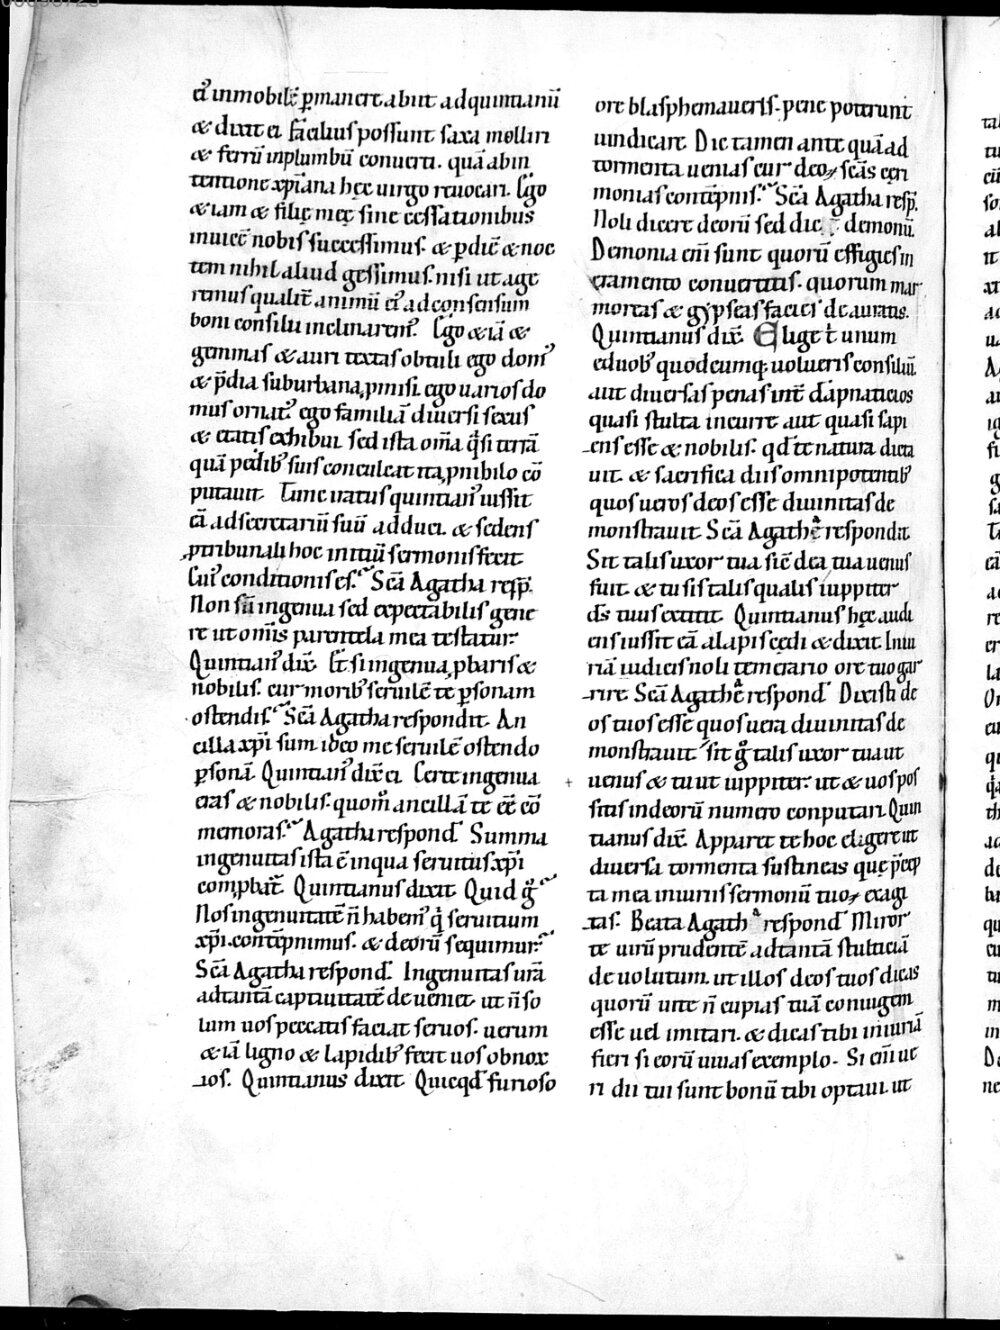 eꝰ inmobilē ꝑmanere abiit ad quintianū
& dixit ei. Facilius possunt saxa molliri
& ferrū inplumbū conuerti. quā ab in
tentione xp̄iana hęc uirgo reuocari. Ego
& iam & filię męę sine cessationibus
inuicē nobis successimus. & ꝑ diē & noc
tem nihil aliud gessimus. nisi ut age
remus qualit̄ animū eꝰ ad consensum
boni consilii inclinaremꝰ. Ego & iā &
gemmas & auri textas obtuli ego domꝰ
& p̄dia suburbana ꝓmisi. ego uarios do
mus ornatꝰ ego familiā diuersi sexus
& etatis exhibui. sed ista om̄a q̄si terrā
quā pedibꝰ suis conculcat ita ꝓ nihilo cō
putauit. Tunc iratus quintianꝰ iussit
eā ad secretariū suū adduci. & sedens
ꝓ tribunali hoc initiū sermonis fecit
Cuiꝰ conditionis es. Sc̄a Agatha resp̄.
Non sū ingenua sed expectabilis gene
re ut om̄is parentela mea testatur.
Quintianꝰ dix̄. Et si ingenua ꝓbaris &
nobilis. cur moribꝰ seruilē te ꝑsonam
ostendis. Sc̄a Agatha respondit. An
cilla xp̄i sum. ideo me seruilē ostendo
ꝑsonā. Quintianꝰ dix̄ ei. Certe ingenua
eras & nobilis. quom̊ ancillā te eē cō
memoras. Agatha respond̄. Summa
ingenuitas ista ē inqua seruitus xp̄i
comꝓbat̄. Quintianus dixit. Quid g̊
Nos ingenuitatē n̄ habemꝰ qi seruitium
xp̄i. contēpnimus. & deorū sequimur.
Sc̄a Agatha respond̄. Ingenuitas ur̄a
ad tantā captiuitatē deuenit. ut n̄ so
lum uos peccatis faciat seruos. uerum
& iā ligno & lapidibꝰ fecit uos obnox
ios. Quintianus dixit. Quicqd̄ furioso
ore blasphemaueris. pene poterunt
uindicare. Dic tamen ante quā ad
tormenta uenias cur deoꝝ sc̄as ceri
monias contēpnis. Sc̄a Agatha resp̄.
Noli dicere deorū sed dic demonū.
Demonia eni sunt quorū effigies in
eramento conuertitis. quorum mar
moreas & gypseas facies deauratis.
Quintianus dix̄. Elige t̄ unum
e duobꝰ quodcumq; uolueris consiliū
aut diuersas penas int̄ dāpnaticios
quasi stulta incurre aut quasi sapi
ens esse & nobilis. qd̄ te natura dicta
uit. & sacrifica diis omnipotentibꝰ
quos ueros deos esse diuinitas de
monstrauit. Sc̄a Agatha respondit.
Sit talis uxor tua sic̄ dea tua uenus
fuit. & tu sis talis qualis iuppiter
ds̄ tuus extitit. Quintianus hęc audi
ens iussit eā alapis cędi & dixit. Iniu
riā iudicis noli temerario ore tuo gar
rire. Sc̄a Agatha respond̄. Dixisti de
os tuos esse quos uera diuinitas de
monstrauit. sit g̊ talis uxor tua ut
uenus & tu ut iuppiter. ut & uos pos
sitis in deorū numero conputari. Quin
tianus dix̄. Apparet te hoc eligere ut
diuersa tormenta sustineas quę p̄cep
ta mea iniuriis sermonū tuoꝝ exagi
tas. Beata Agatha respond̄. Miror
te uirū prudentē ad tantā stulticiā
deuolutum. ut illos deos tuos dicas
quorū uite n̄ cupias tuā coniugem
esse uel imitari. & dicas tibi iniuriā
fieri si eorū uiuas exemplo. Si eni ue
ri dii tui sunt bonū tibi optaui. ut